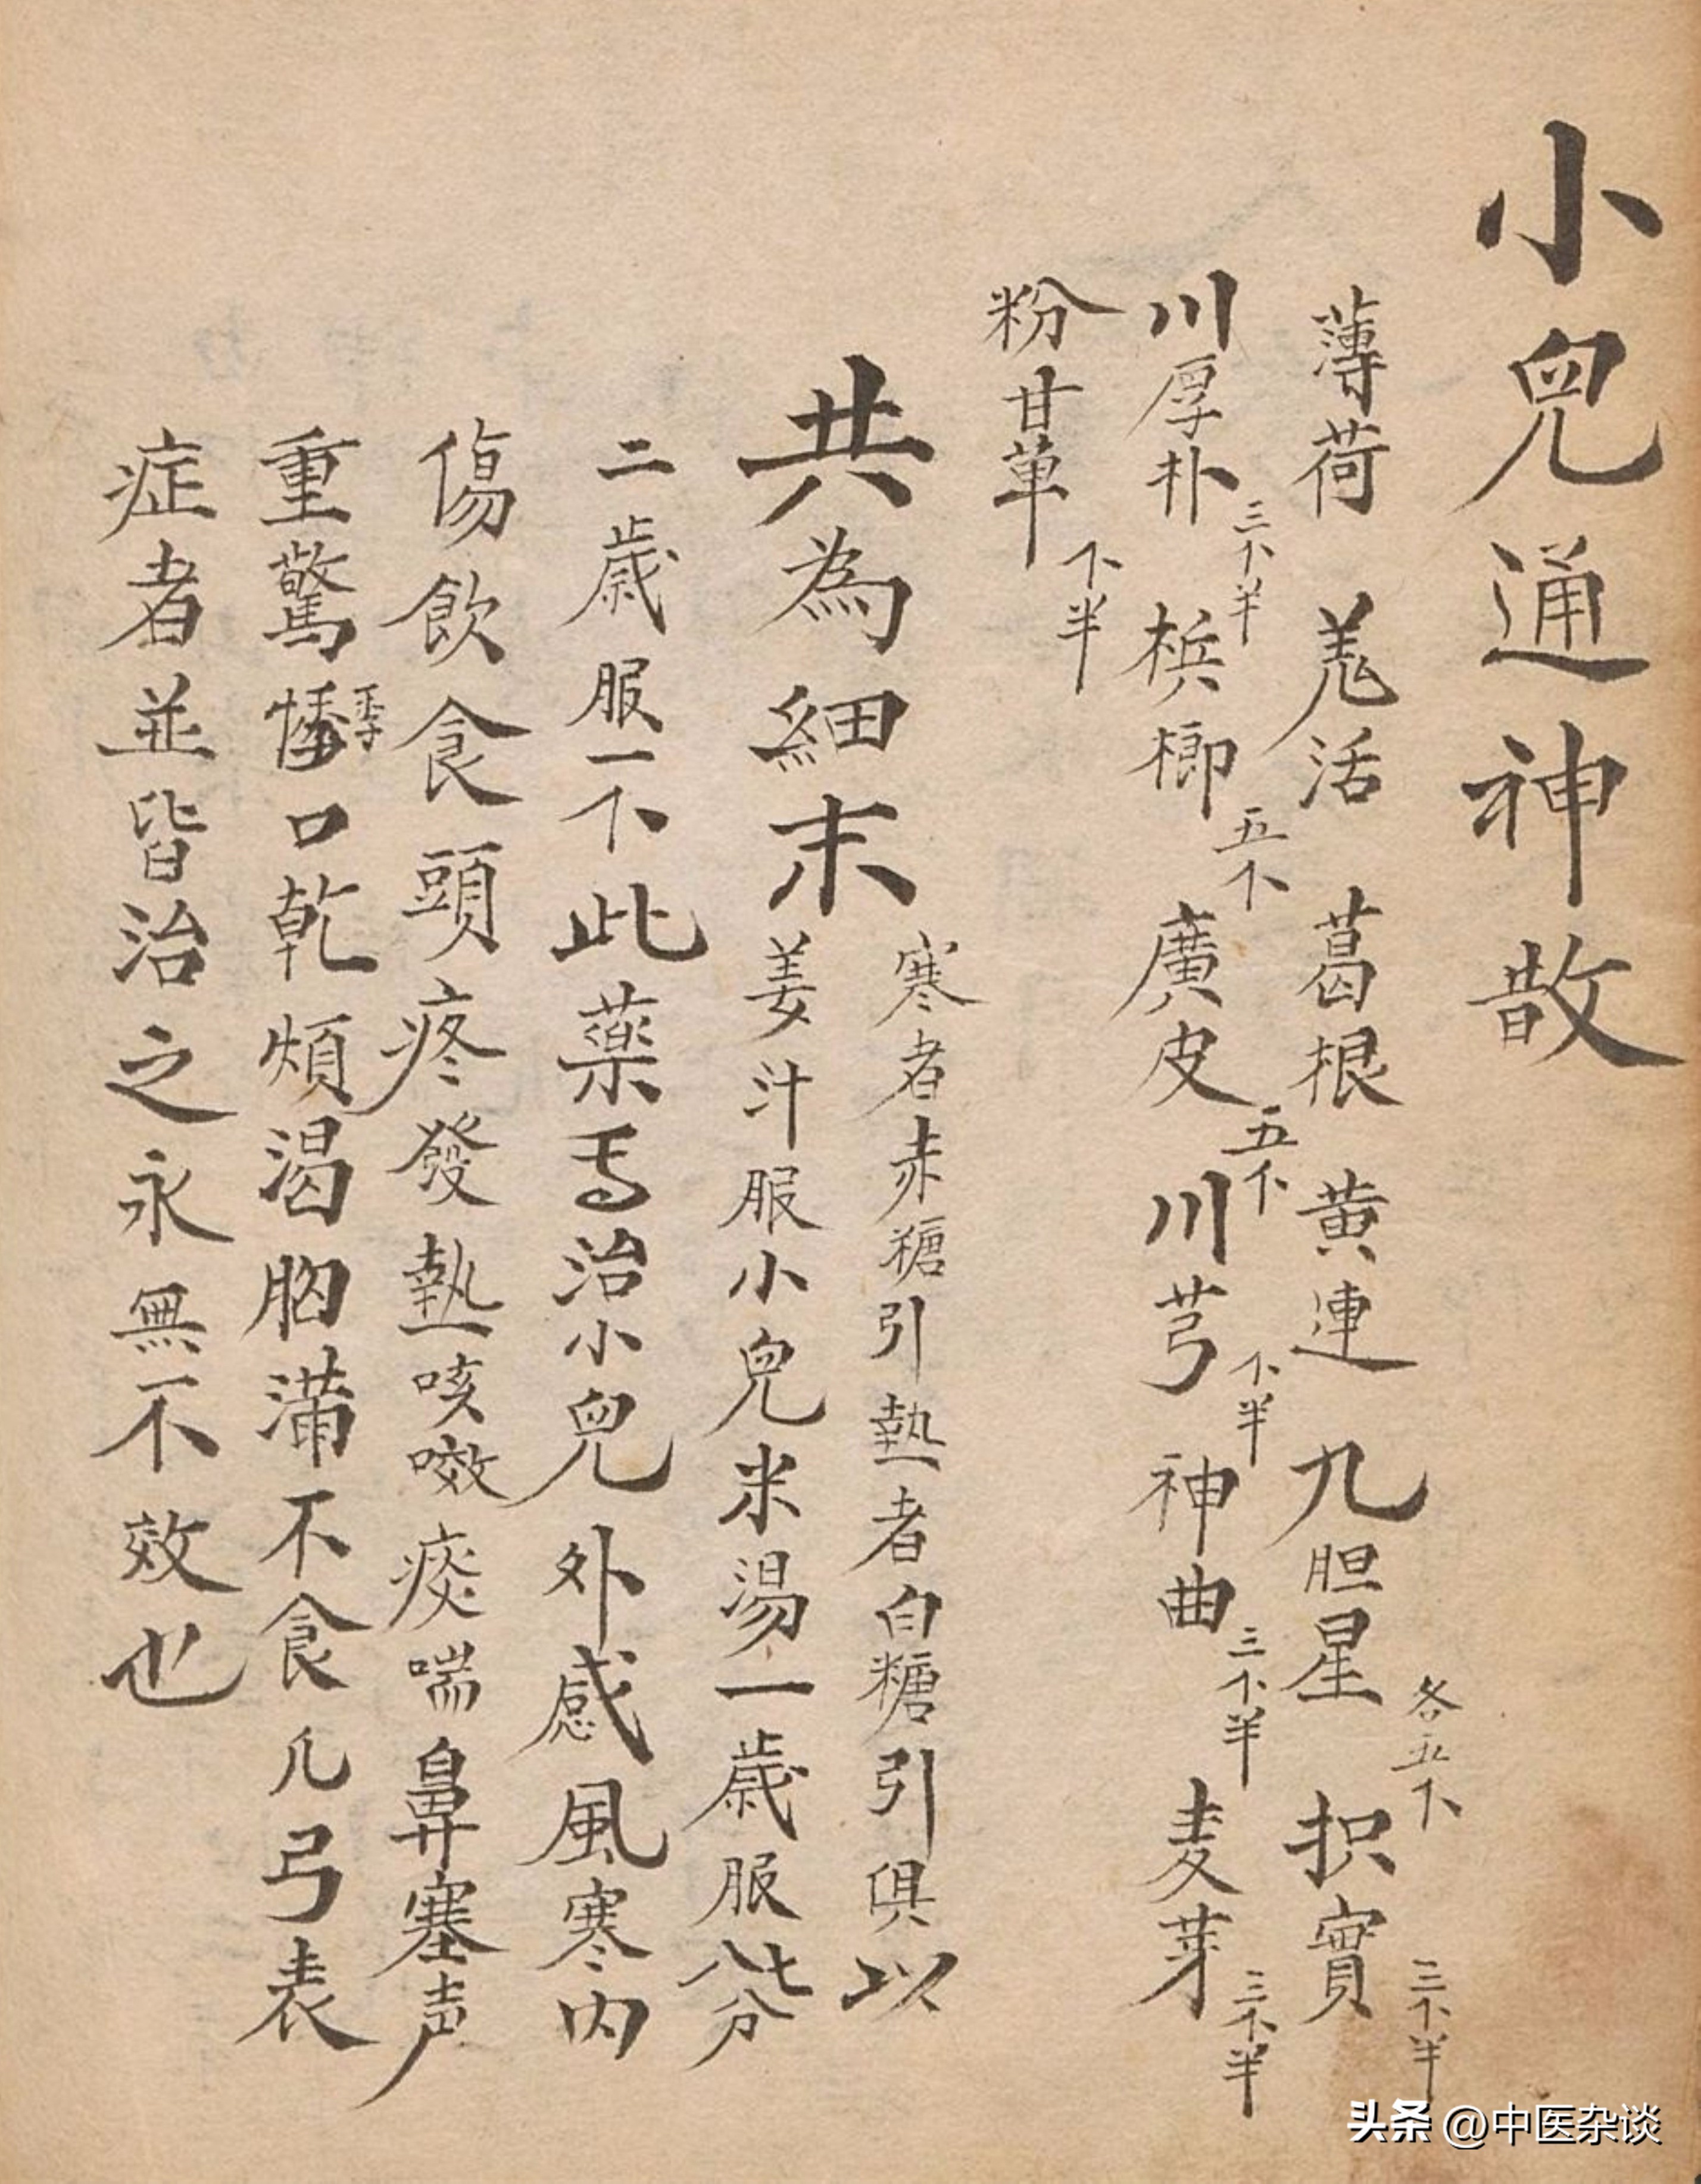 小兒通神散
薄荷 羗活 葛根 黄連 九胆星各五下 枳實三下半
川厚朴三下半 梹榔五下 廣皮五下 川芎下半 神曲三下半 麦芽三下半
粉甘草下半
共為細末寒者赤糖引熱者白糖引俱以
姜汁服小兒米湯一歲服七八分
二歲服一下此藥專治小兒外感風寒内
傷飲食頭疼發熱咳嗽痰喘鼻塞声
重驚悸口乾煩渴胸滿不食
表
症者並皆治之永無不效也
头条 @中医杂谈